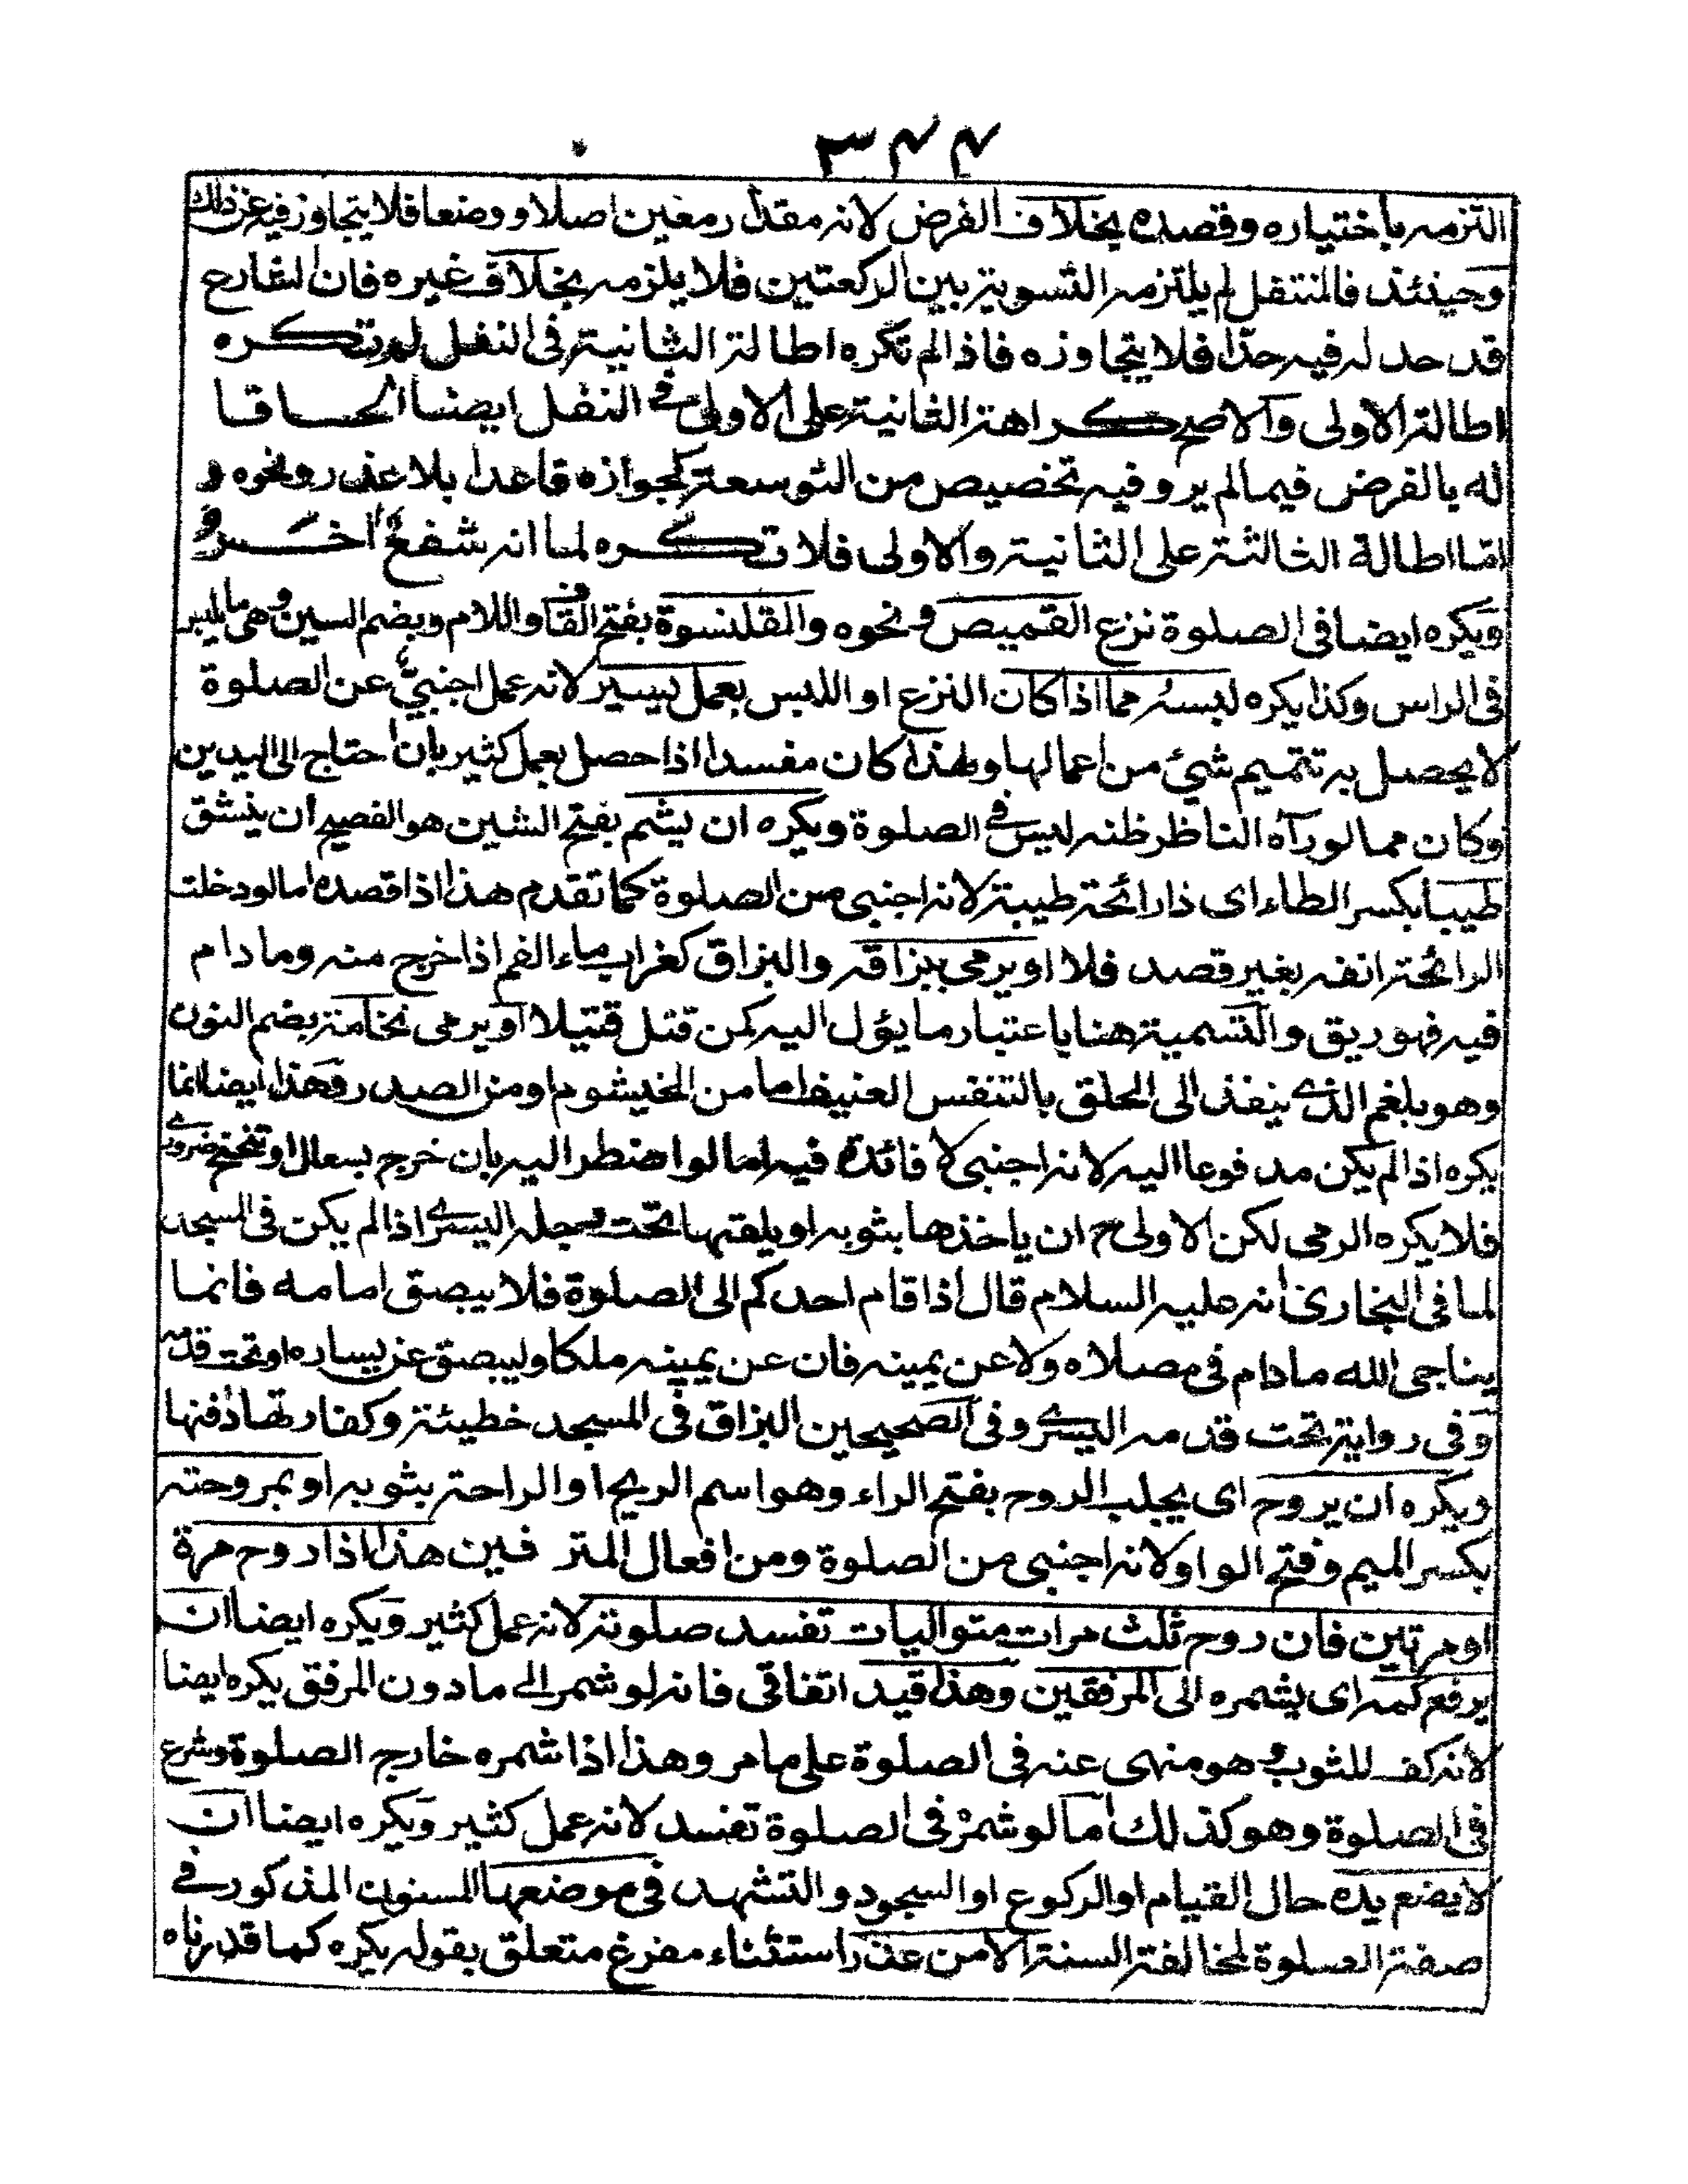 ٣٤٤
التزمه باختياره وقصده بخلاف الفرض لانه مقدر معين اصلا ووضعا فلا يتجاوز فيه عن ذلك
وحينئذ فالمتنفل لم يلتزمه التسوية بين الركعتين فلا يلزمه بخلاف غيره فان الشارع
قد حد له فيه حدا فلا يتجاوزه فاذا لم تكره اطالة الثانية فى النفل لم تكره
اطالة الاولى والاصح كراهة الثانية على الاولى فى النفل ايضا الحاقا
له بالفرض فيما لم يرو فيه تخصيص من التوسعة كجوازه قاعدا بلا عذر ونحوه و
اما اطالة الثالثة على الثانية والاولى فلا تكره لما انه شفع اخر و
ويكره ايضا فى الصلوة نزع القميص ونحوه والقلنسوة بفتح القاف واللام وبضم السين وهى ما يلبس
فى الراس وكذا يكره لبسه مما اذا كان النزع او اللبس بعمل يسير لانه عمل اجنبى عن الصلوة
لا يحصل به تتميم شئ من اعمالها ولهذا كان مفسدا اذا حصل بعمل كثير بان احتاج الى اليدين
وكان مما لو رآه الناظر ظنه ليس فى الصلوة ويكره ان يشم بفتح الشين هو الفصيح ان ينشق
طيبا بكسر الطاء اى ذا رائحة طيبة لانه اجنبى من الصلوة كما تقدم هذا اذا قصده اما لو دخلت
الرائحة انفه بغير قصد فلا او يرمى ببزاقه والبزاق كغراب ماء الفم اذا خرج منه وما دام
فيه فهو ريق والتسمية هنا باعتبار ما يؤل اليه كمن قتل قتيلا او يرمى نخامته بضم النون
وهو بلغم الذى ينفذ الى الحلق بالتنفس العنيف اما من الخيشوم او من الصدر وهذا ايضا انما
يكره اذا لم يكن مدفوعا اليه لانه اجنبى لا فائدة فيه اما لو اضطر اليه بان خرج بسعال او تنحنح ضرورى
فلا يكره الرمى لكن الاولى ح ان ياخذها بثوبه او يلقيها تحت رجله اليسرى اذا لم يكن فى المسجد
لما فى البخارى انه عليه السلام قال اذا قام احدكم الى الصلوة فلا يبصق امامه فانما
يناجى الله ما دام فى مصلاه ولا عن يمينه فان عن يمينه ملكا وليبصق عن يساره او تحت قدمه
وفى رواية تحت قدمه اليسرى وفى الصحيحين البزاق فى المسجد خطيئة وكفارتها دفنها
ويكره ان يروح اى يجلب الروح بفتح الراء وهو اسم الريح او الراحة بثوبه او بمروحته
بكسر الميم وفتح الواو لانه اجنبى من الصلوة ومن افعال المترفين هذا اذا روح مرة
او مرتين فان روح ثلث مرات متواليات تفسد صلوته لانه عمل كثير ويكره ايضا ان
يرفع كمه اى يشمره الى المرفقين وهذا قيد اتفاقى فانه لو شمر الى ما دون المرفق يكره ايضا
لانه كف للثوب وهو منهى عنه فى الصلوة على ما مر وهذا اذا شمره خارج الصلوة وشرع
فى الصلوة وهو كذلك اما لو شمر فى الصلوة تفسد لانه عمل كثير ويكره ايضا ان
لا يضع يده حال القيام او الركوع او السجود والتشهد فى موضعها المسنون المذكور فى
صفة الصلوة لمخالفة السنة الا من عذر استثناء مفرغ متعلق بقوله يكره كما قدرناه